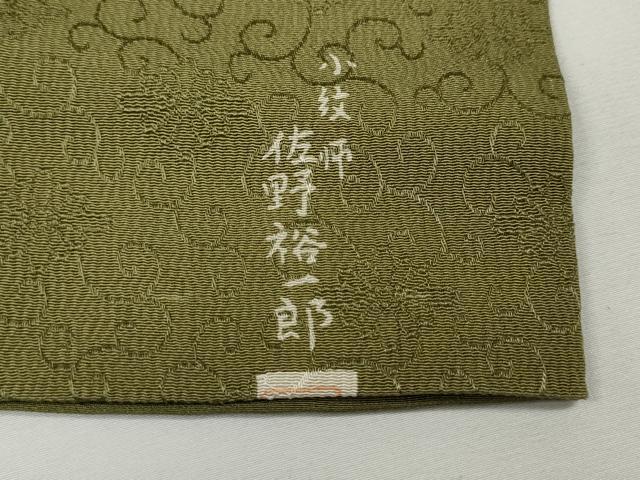 小紋師
佐野裕一郎